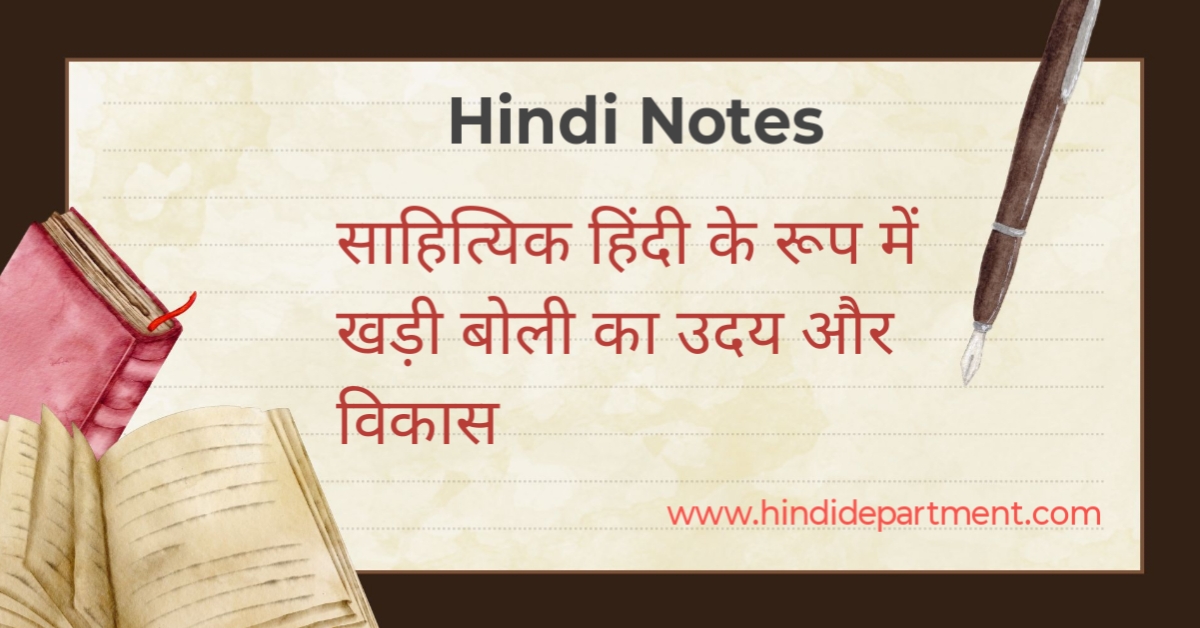 Hindi Notes
साहित्यिक हिंदी के रूप में
खड़ी बोली का उदय और
विकास
www.hindidepartment.com